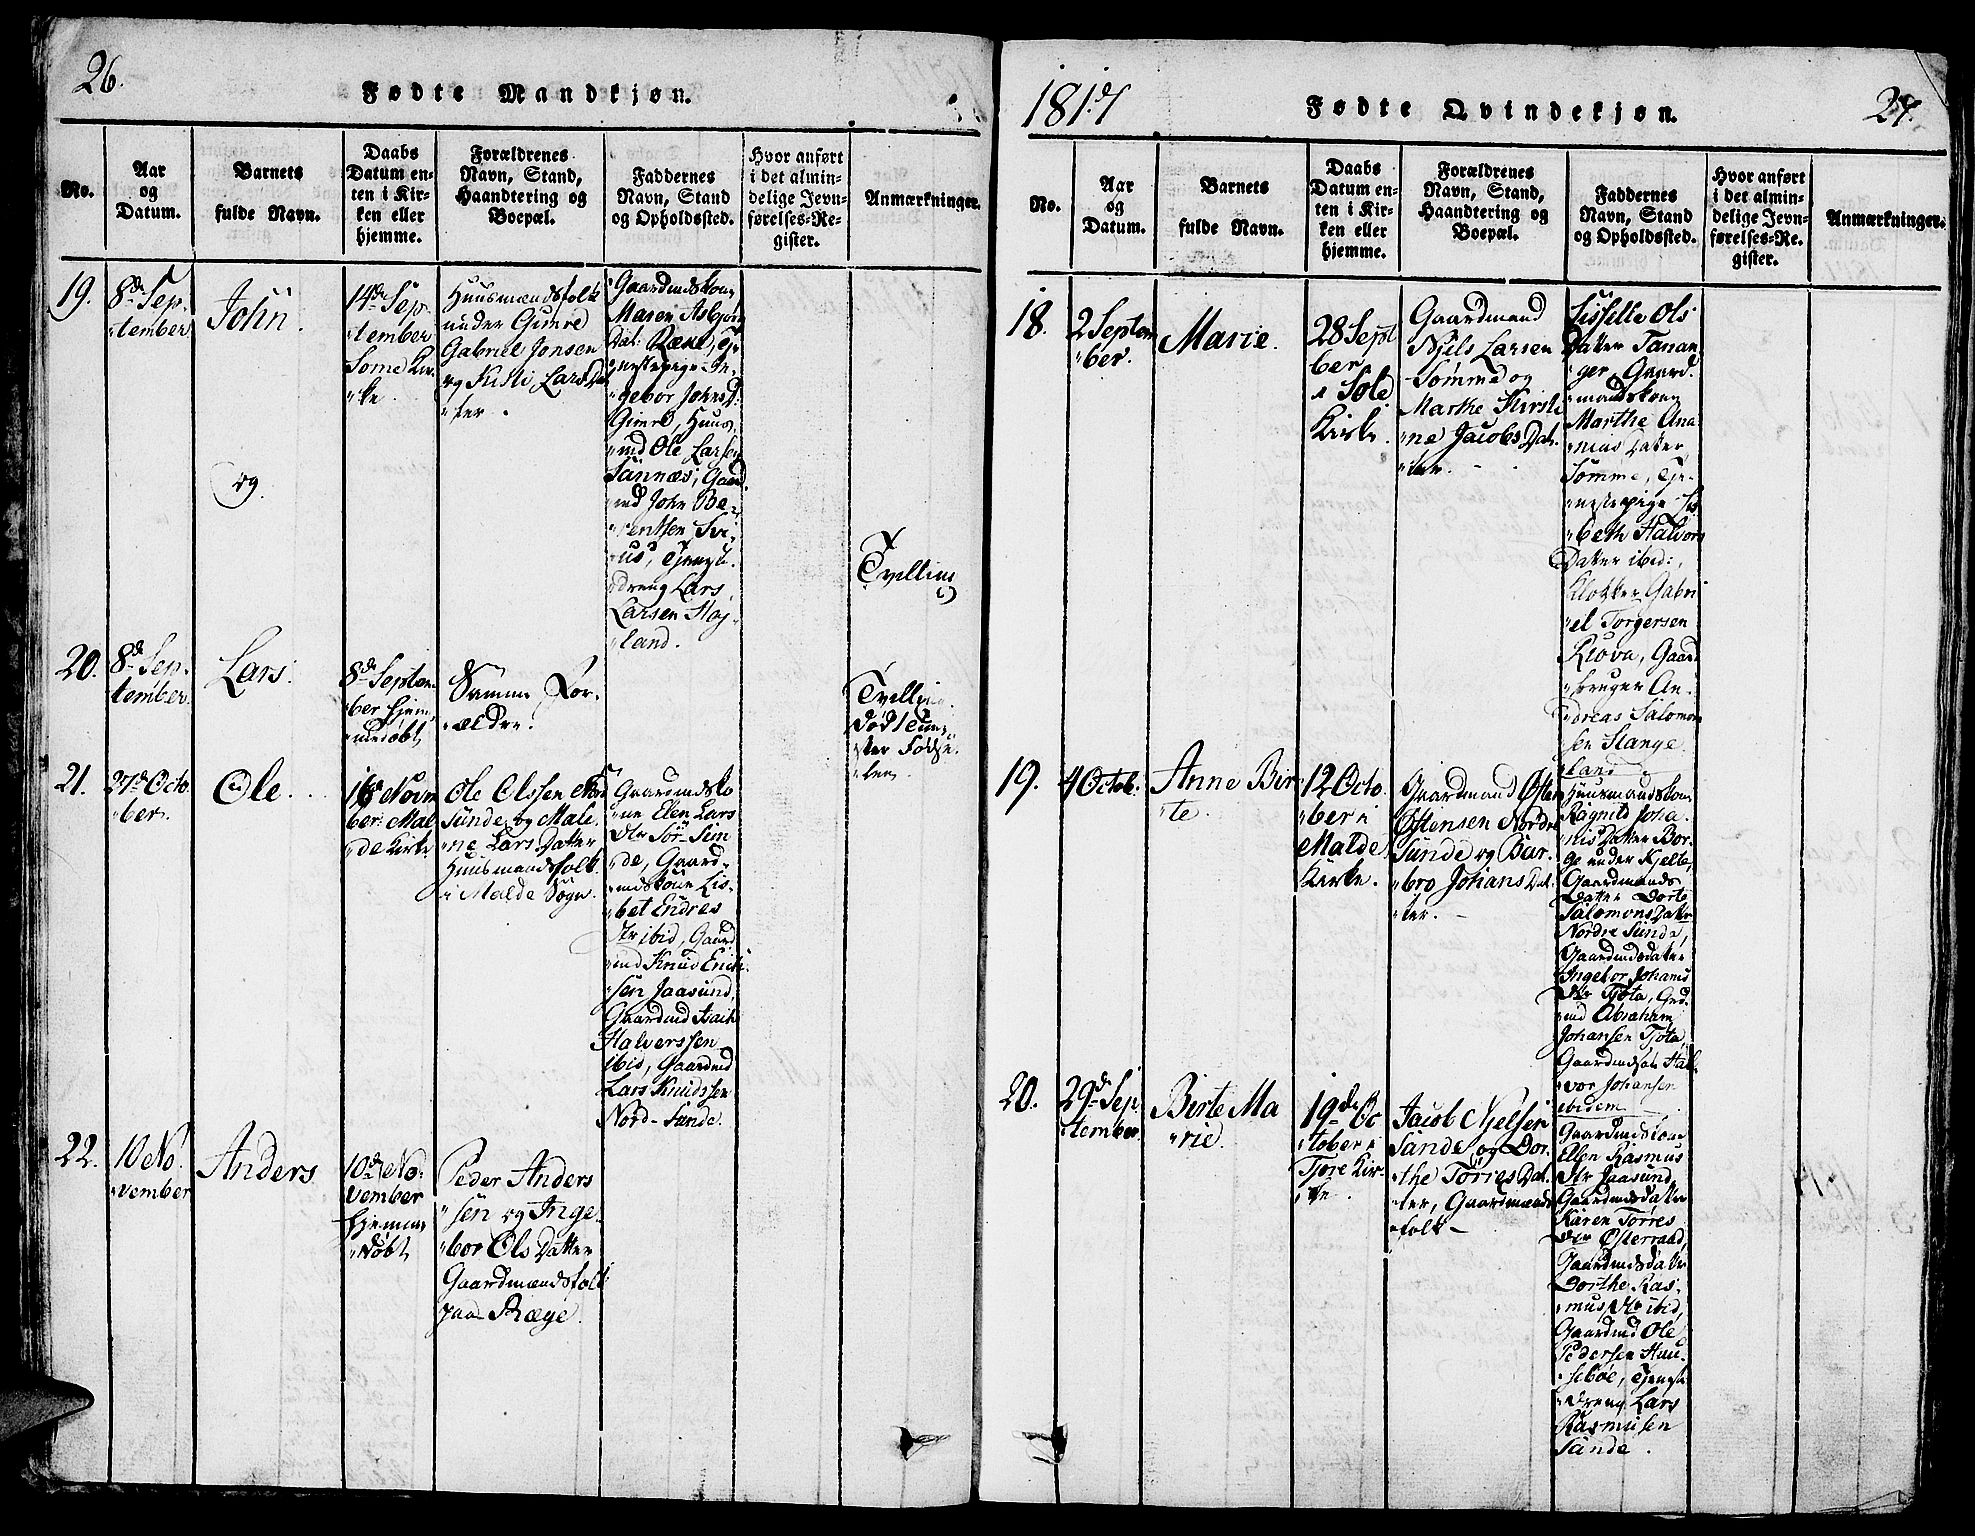 26.
Fødte Mandkjøn.
No.
Aar
og
Datum.
Barnets
fulde Navn.
Daabs
Datum en-
ten i Kir-
ken eller
hjemme.
Forældrenes
Navn, Stand,
Haandtering og
Boepæl.
Faddernes
Navn, Stand
og Opholdssted.
Hvor anført
i det almin-
delige Jevn-
førelses-Re-
gister.
Anmærkninger.
19.
8de Sep-
tember
John.
og
14de Sep-
tember
Some Kir-
ke.
Huusmændsfolk
under Gimre
Gabriel Jonsen
og Kisti Lars Dat
ter.
Gaardmdskone
Maren Asbjørn
Dat: Ræne, Tje
nestepige In-
gebor Johns D.
Gimre, Huus
md Ole Larsen
Sannæs, Gaard
md John Be-
rentsen Svi-
us, Tjenest.
dreng Lars
Larsen Haj-
land.
Tvelling
20.
8de Sep-
tember
Lars.
8de Septem-
ber hjem
medøbt
Samme For-
ældre.
Tvelling
død 1 Time
efter Fødse-
len
21.
27de Octo-
ber.
Ole.
16de Novm
ber. Mal
de Kirke
Ole Olssen Nord
Sunde og Male-
ne Lars Datter
Huusmandsfolk
i Malde Sogn.
Gaardmdsko
ne Elen Lars
Dtr Sør-Sun
de, Gaard-
mdskone Lis-
bet Endres
Dtr ibid, Gaard
md Knud Erik-
sen Jaasund,
Gaardmd Isach
Halverssen
ibid, Gaardmd
Lars Knudssen
Nord-Sunde.
22.
10 No-
vember
Anders
10de No-
vember
hjemme
døbt
Peder Anders
sen og Inge-
bor Ols Datter
Gaardmændsfolk
paa Ræge.
1817
Fødte Qvindekjøn.
27.
No.
Aar
og
Datum.
Barnets
fulde Navn.
Daabs
Datum en-
ten i Kir-
ken eller
hjemme.
Forældrenes
Navn, Stand,
Haandtering og
Boepæl.
Faddernes
Navn, Stand
og Opholdssted.
Hvor anført
i det almin-
delige Jevn-
førelses-Re-
gister.
Anmærkninger.
18.
2 Septem
ber.
Marie.
28 Sept
ber
i Sole
Kirke.
Gaardmand
Njels Larsen
Sømme og
Marthe Kirsti
ne Jacobs Dat-
ter.
Sissille Ols
Datter Tanan
ger, Gaard-
mandskone
Marthe Ana
nias Datter
Sømme, Tje-
nestepige Lis
beth Halvors
Datter ibid:,
Klokker Gabri
el Torgersen
Risva, Gaard
bruger An-
dreas Salomon
sen Stange
land
19.
4 Octob:
Anne Bir
te.
12 Octo
ber i
Malde
Kirke.
Gaardmand Østen
Østensen Nordre
Sunde og Bar-
bro Johans Dat
ter.
Huusmandskone
Ragnild Joha
nis Datter Bor-
ge under Kjelte,
Gaardmands
Datter Dorte
Salomons Datter
Nordre Sunde,
Gaardmdsdatter
Ingebor Johans
Dtr Tjøta, Grd
md Abraham
Johansen Tjota,
Gaardmdsøn Hal
vor Johansen
ibidem
20.
29de Sep
tember
Birte Ma
rie.
19de Oc
tober i
Tjore Kir-
ke.
Jacob Njelsen
Sunde og Dor-
the Tørres Dat
ter, Gaardmænds
folk
Gaardmdskone
Ellen Rasmus
Dtr Jaasund,
Gaardmdsdatter
Karen Tørres
Dtr Østerraad,
Gaardmdsdatter
Dorthe Ras-
mus Dtr ibid,
Gaardmd Ole
Pedersen Huu-
sebøe, Tjenest
dreng Lars
Rasmusen
Sunde.